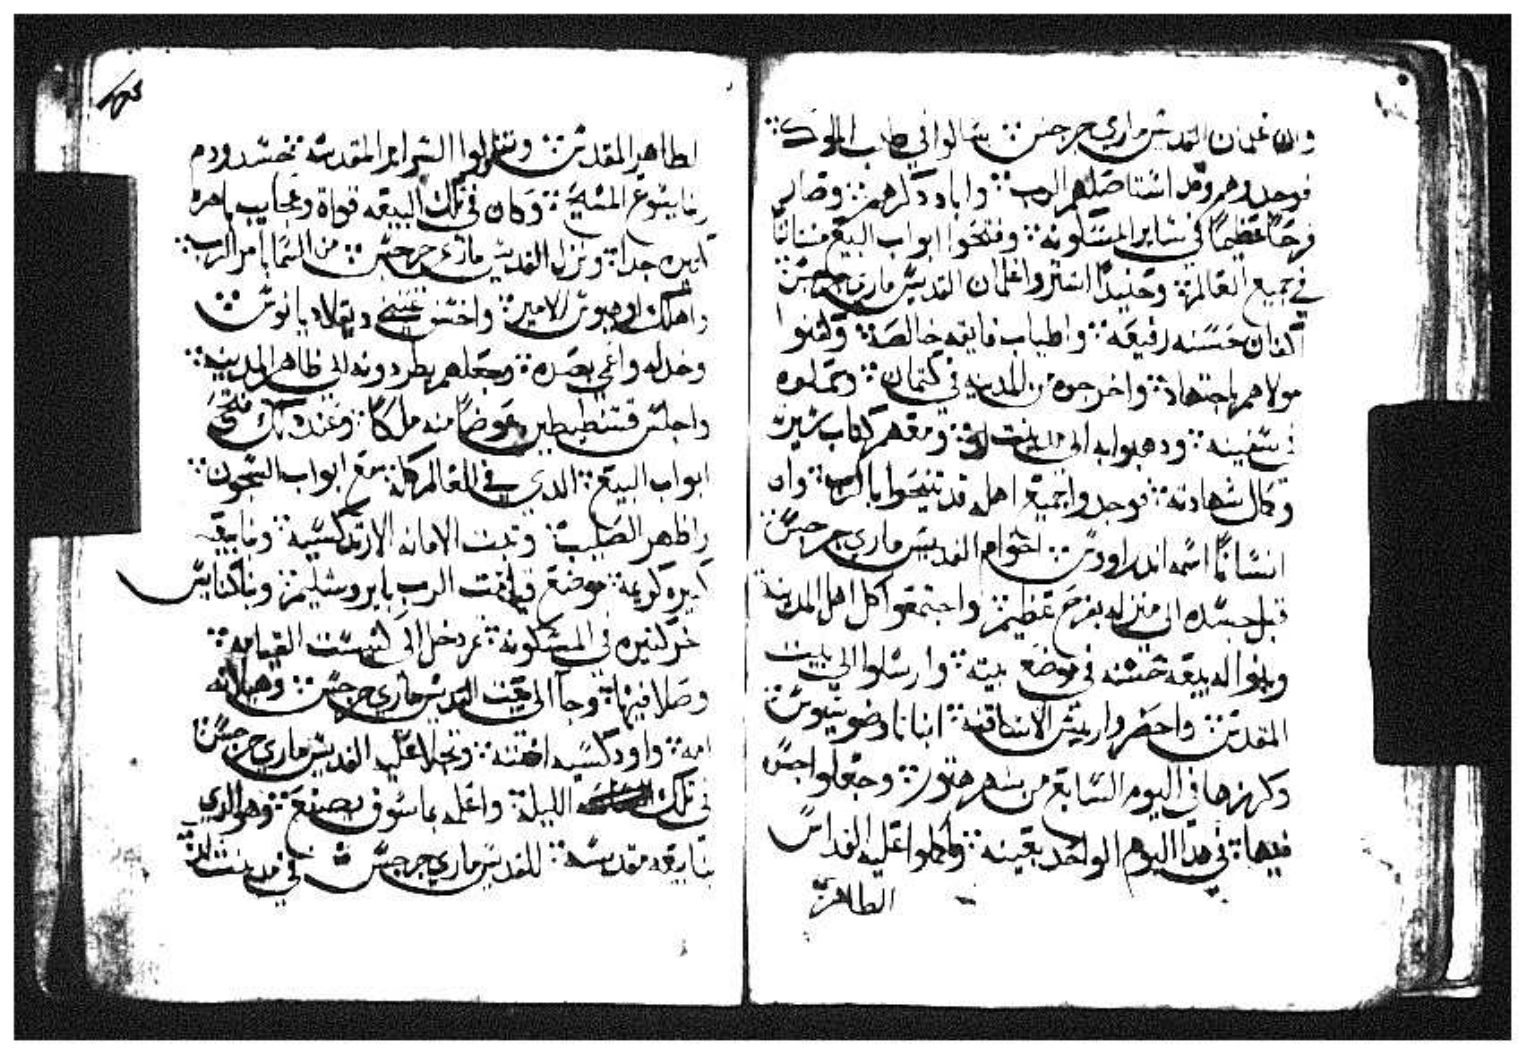 وان غلمان القديس ماري جرجس سالوا في طلب الملوك
فوجدوهم وقد استاصلهم الرب واباد ذكرهم وصار
فرحا عظيما في ساير المسكونة وفتحوا ابواب البيع مثتانيا
في جميع العالم وحنيدا اشتروا غلمان القديس ماري جرجس
اكفان حسنه رفيعه واطياب فايقه خالصة وكفنوا
مولاهم باجتهاد واخرجوه من المدينه في كتمان وحملوه
في سفينه ودهبوا به الى مدينت لد ومعهم كتاب سيرته
وكمال شهادته فوجدوا جميع اهله قد تنيحوا بالرب وان
انسانا اسمه اندراوس اخو ام القديس ماري جرجس
قبل جسده الى منزله بفرح عظيم واجتمعوا كل اهل المدينة
وبنوا له بيعه حسنه في موضع بيته وارسلوا الي بيت
المقدس واحضروا ريس الاساقفه انبا تاوضوسيوس
وكرزها في اليوم السابع من شهر هتور وجعلوا جسده
فيها في هدا اليوم الواحد بعينه وكملوا عليه القداس
الطاهر
الطاهر المقدس وتناولوا السراير المقدسه جسد ودم
ربنا يسوع المسيح وكان في تلك البيعه قواة وعجايب باهره
كثيره جدا ونزل القديس ماري جرجس من السما بامر الرب
واهلك اوهيوس الامير واخسف دقلاديانوس
وخدله واعمي بصره وجعلهم يطردونه الى ظاهر المدينه
واجلس قسطنطين عوضا منه ملكا وعند دلك فتح
ابواب البيع الدي في العالم كله مع ابواب السجون
واظهر الصليب وتبت الامانه الارتدكسيه وبنا بيعه
كبيره كريمه موضع قيامت الرب بايروشليم وبنا كنايس
اخر كثيره في المسكونه ثم دخل الى كنيست القيامه
وصلا فيها وجا الى بيعت القديس ماري جرجس وهيلانه
امه واودكسيه اخته وتجلا عليه القديس ماري جرجس
في تلك الليلة واعلمه بما سوف يصنع وهو الدي
بنا بيعه مقدسه للقديس ماري جرجس في مدينت لد